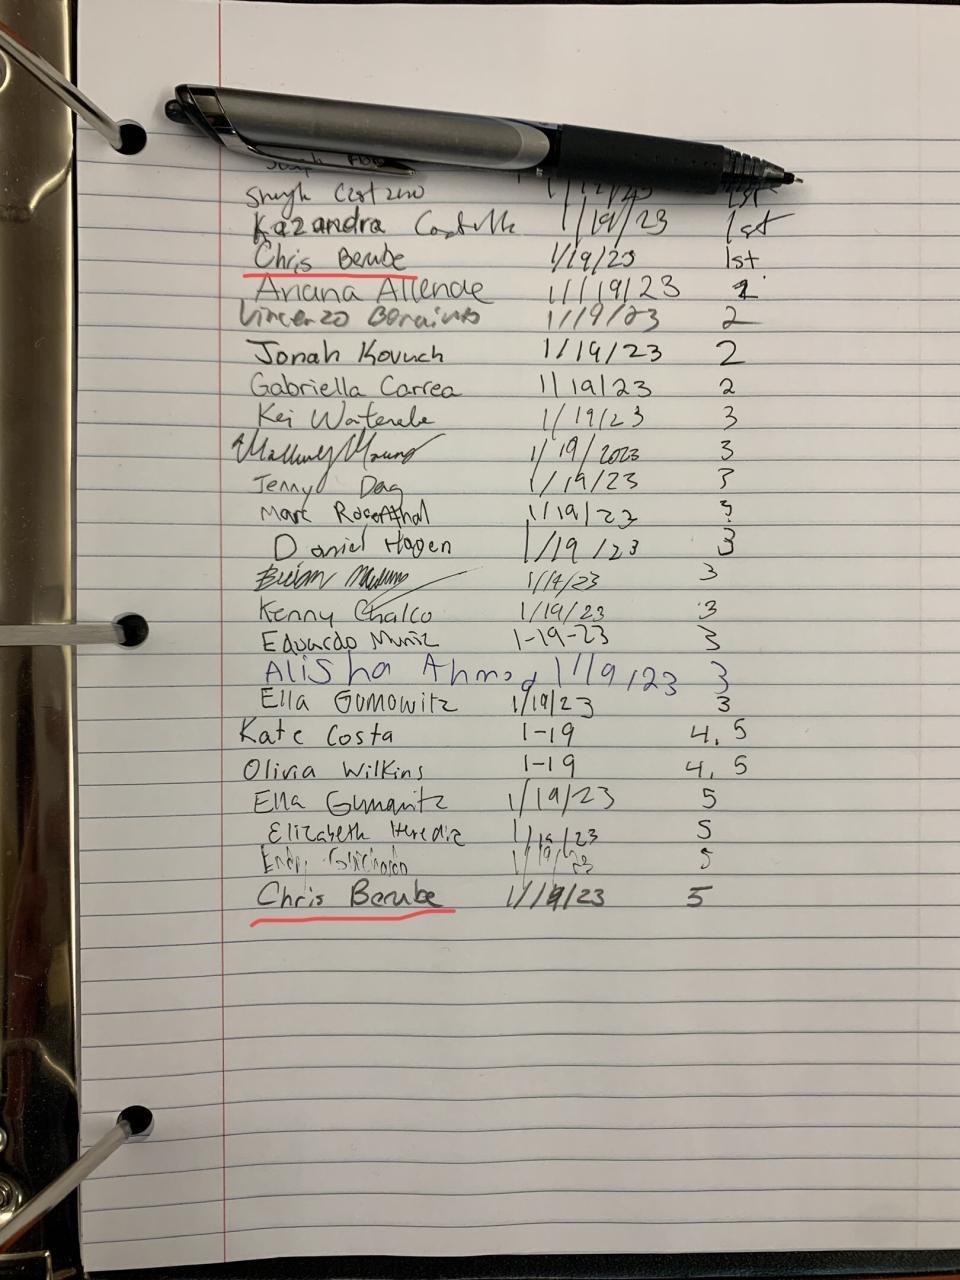 1st
Kazandra 1/19/23 1st
Chris Berube 1/19/23 1st
Ariana Allende 1/19/23 2
Vincenzo 1/19/23 2
Jonah Kovach 1/19/23 2
Gabriella Correa 1/19/23 2
Kei Watenabe 1/19/23 3
1/19/2023 3
Jenny 1/19/23 3
Marc Rosenthal 1/19/23 3
Daniel Hagen 1/19/23 3
3
Kenny Chalco 1/19/23 3
Eduardo Muniz 1-19-23 3
Alisha Ahmed 1/19/23 3
Ella Gomowitz 1/19/23 3
Kate Costa 1-19 4, 5
Olivia Wilkins 1-19 4, 5
Ella 1/19/23 5
Elizabeth Heredia 1/19/23 5
1/19/23 5
Chris Berube 1/19/23 5